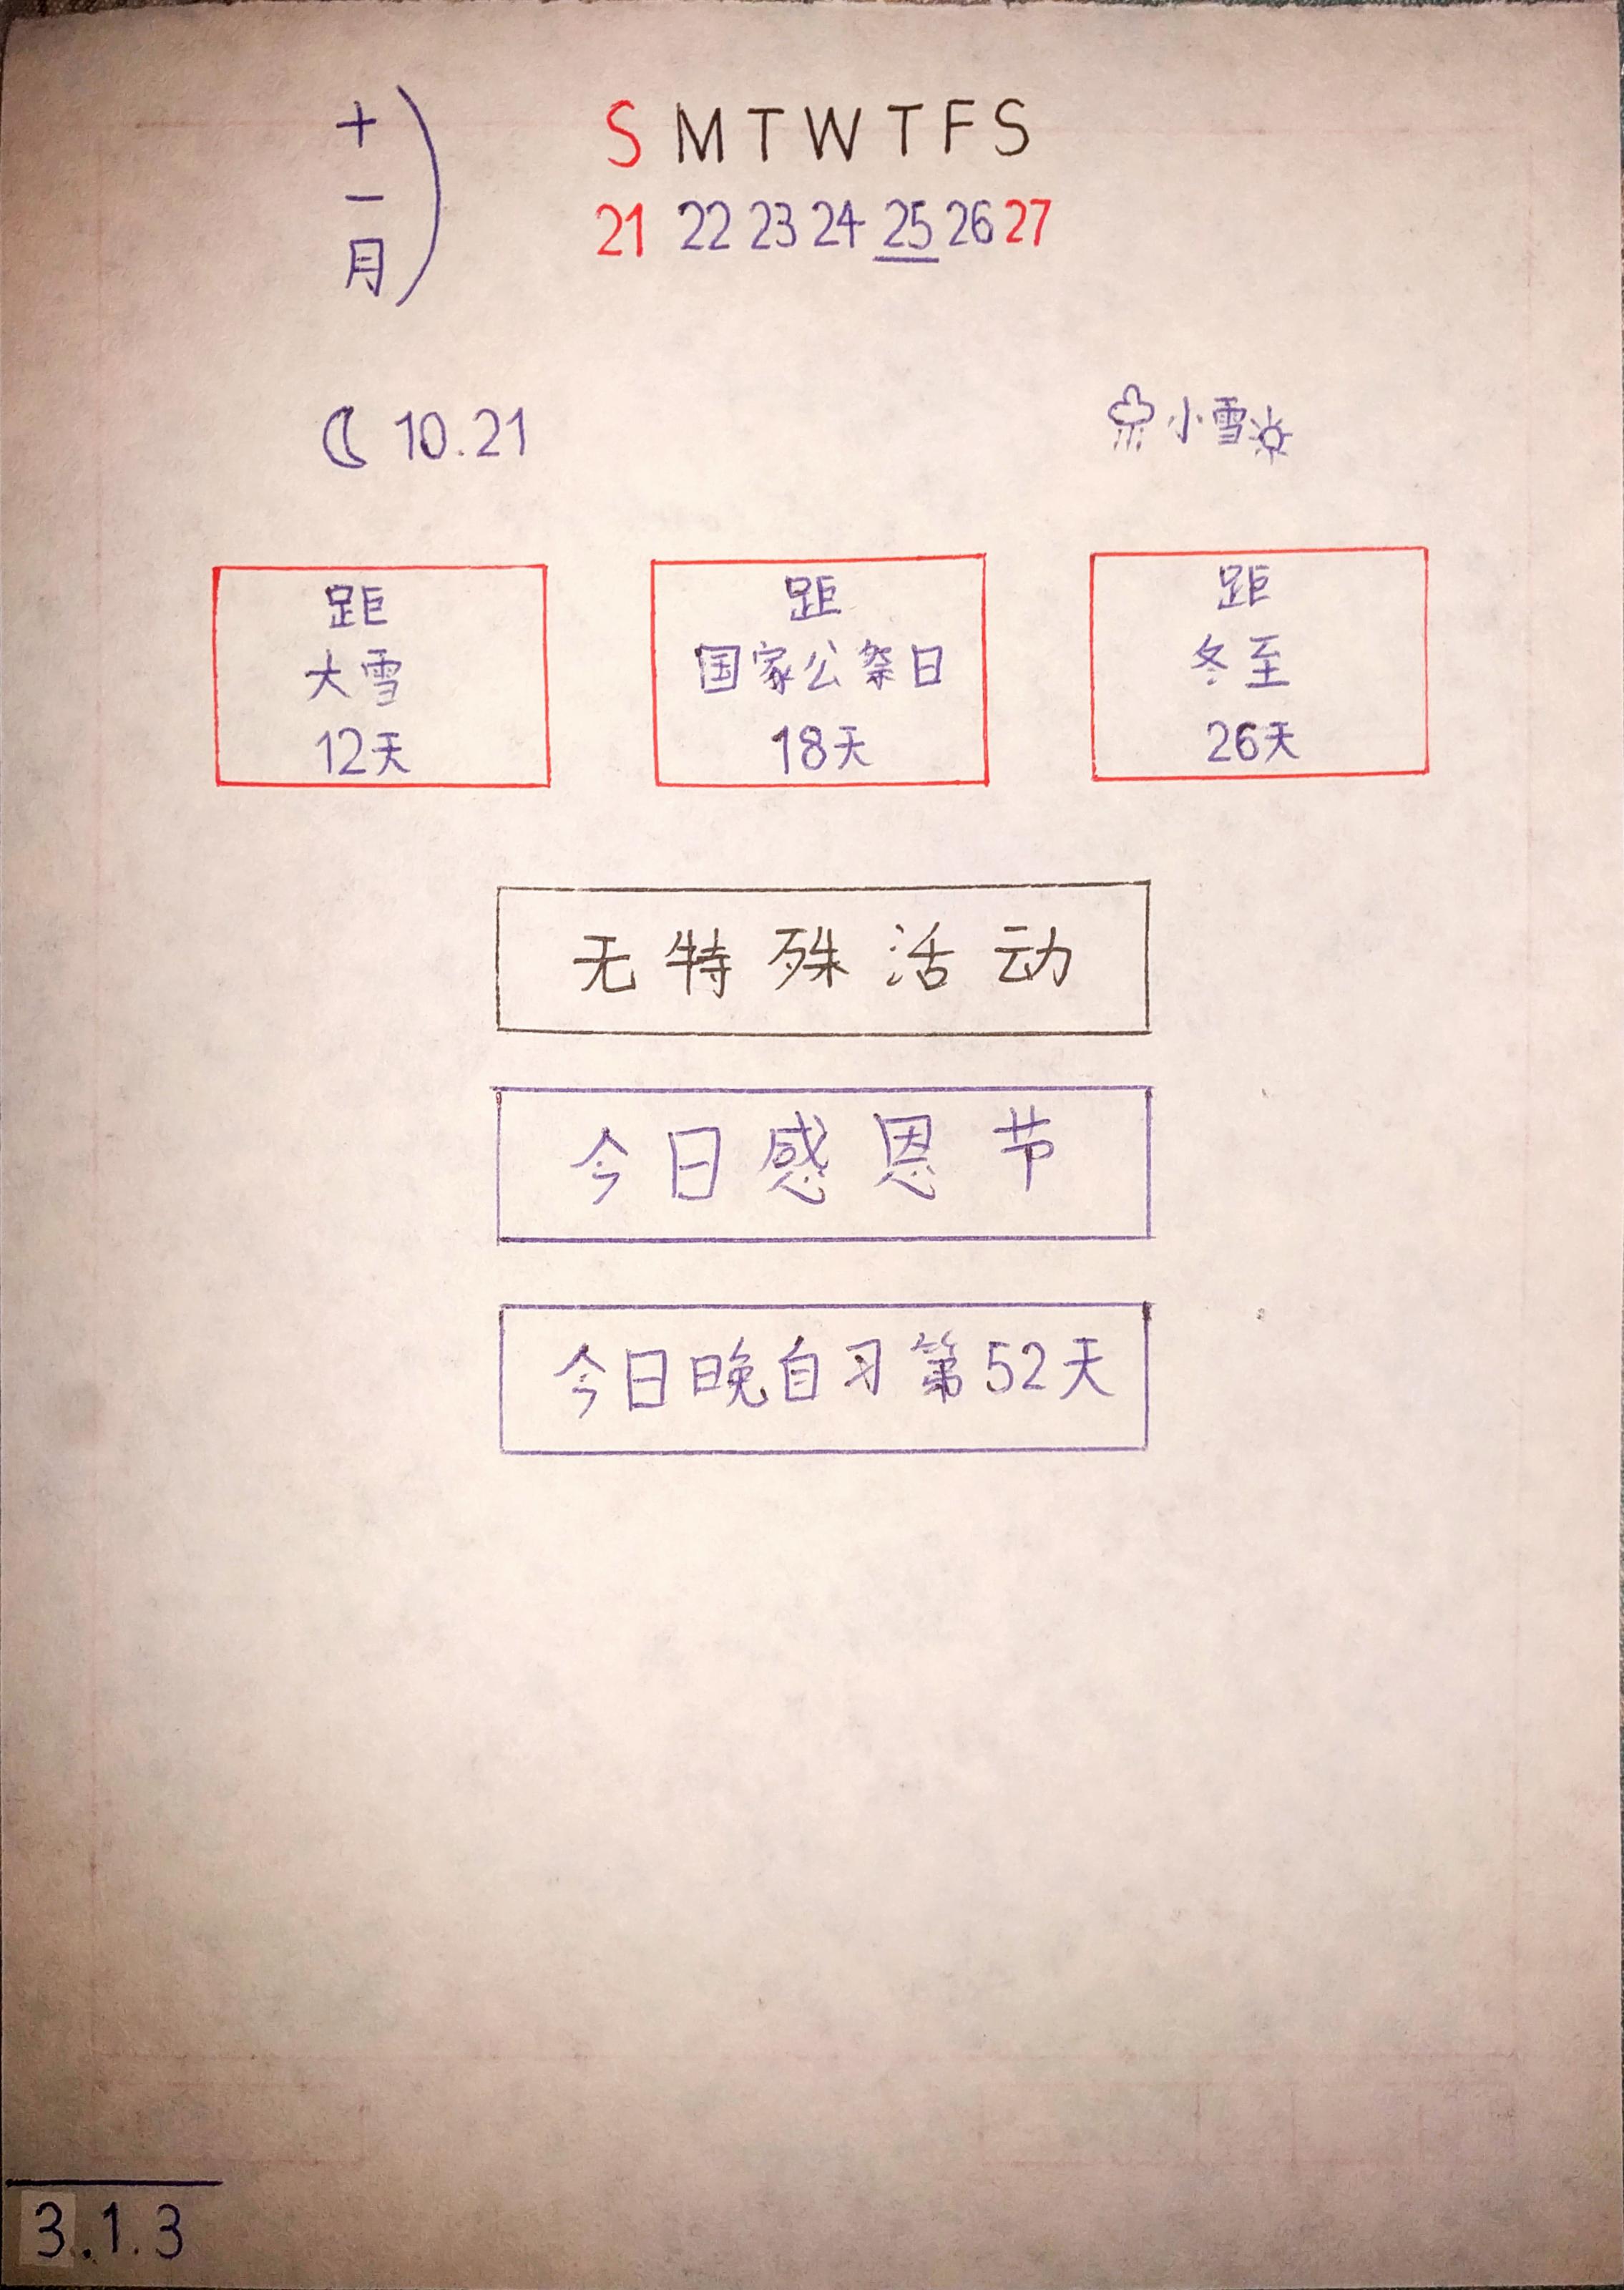 十
一
月
S M T W T F S
21 22 23 24 25 26 27
10.21
小雪
距
大雪
12天
距
国家公祭日
18天
距
冬至
26天
无特殊活动
今日感恩节
今日晚自习第52天
3.1.3